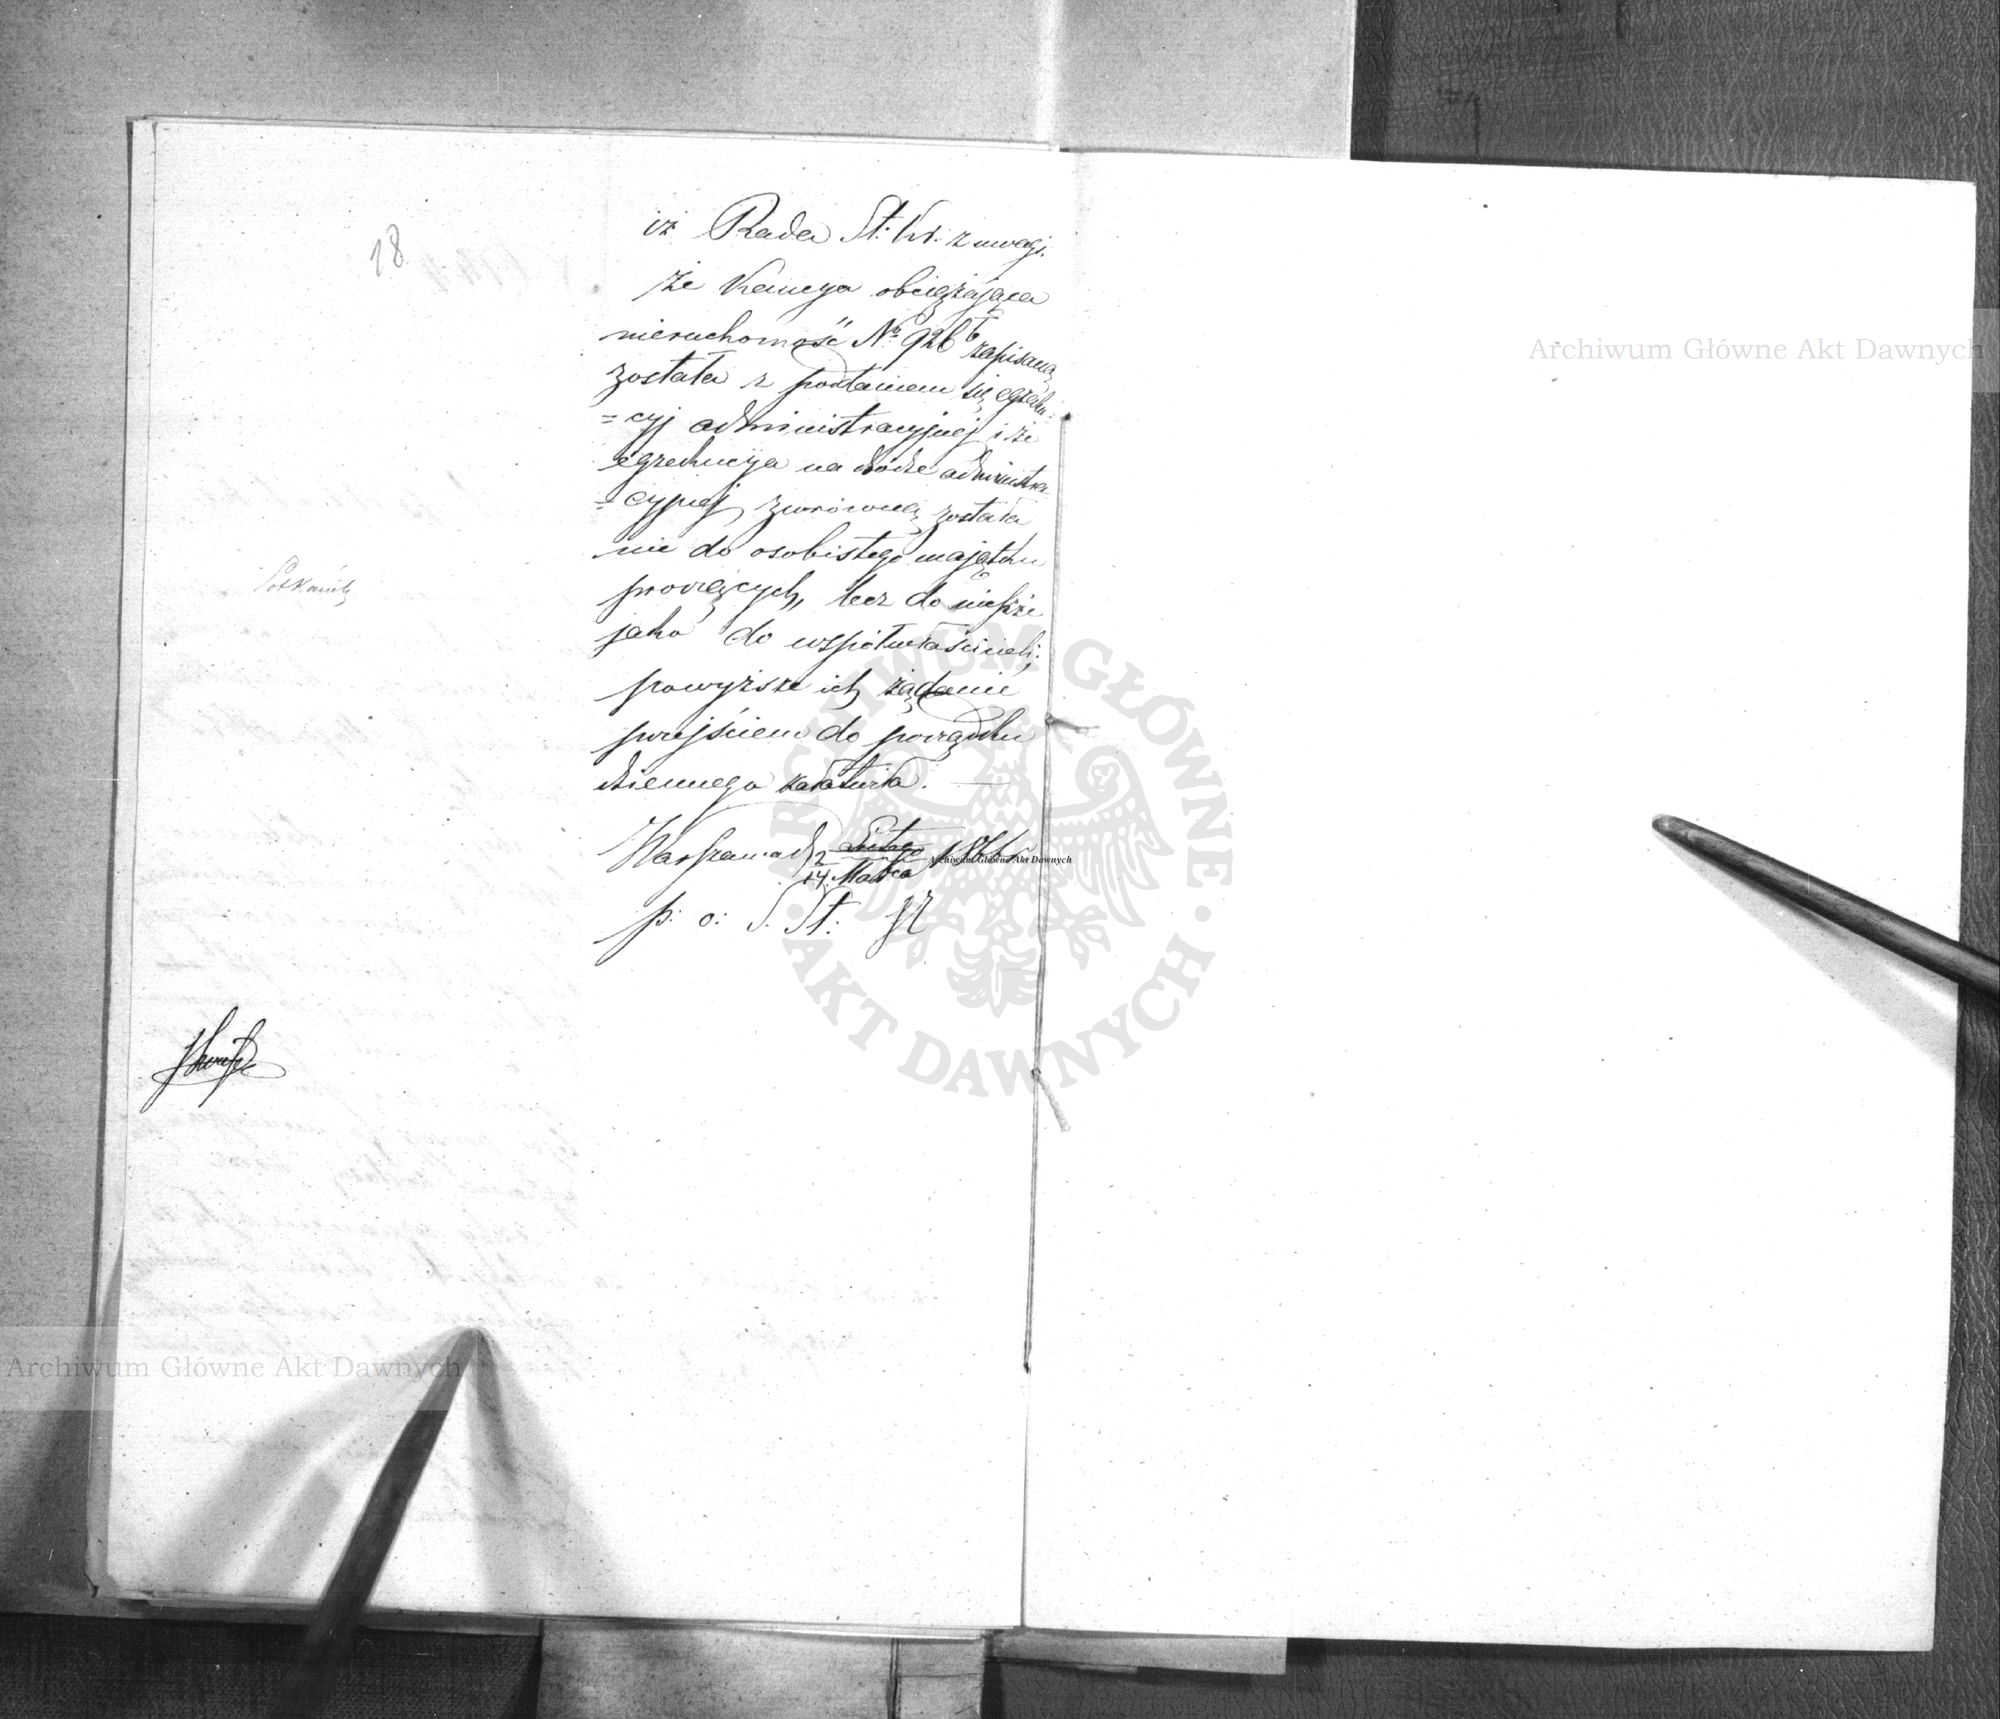 18
iż Rada St: Kr: z uwagi
że Kaucya obciążająca
nieruchomość No 926 b zapisaną
została z poddaniem się egzeku-
=cyj administracyjnej i że
egzekucyja na drodze administra
=cyjnej zwróconą została
nie do osobistego majątku
proszących, lecz do nichże
jako do współwłaścicieli;
powyższe ich żądanie
przejściem do porządku
dziennego załatwiła.
Warszawa d 2 Lutego
14 Marca 186
p: o: S. St:
Archiwum Główne Akt Dawnych
Archiwum Główne Akt Dawnych
Archiwum Główne Akt Dawnych
ARCHIWUM GŁÓWNE
AKT DAWNYCH